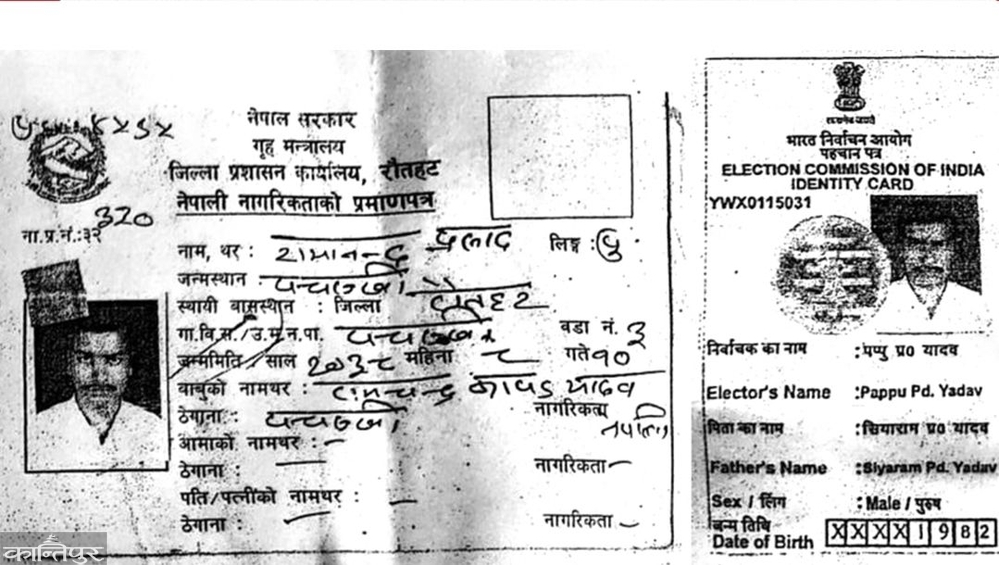 नेपाल सरकार
गृह मन्त्रालय
जिल्ला प्रशासन कार्यालय, रौतहट
नेपाली नागरिकताको प्रमाणपत्र
ना.प्र.नं.:३२ 320
नाम, थर : प्रसाद लिङ्ग : पु.
जन्मस्थान :
स्थायी बासस्थान : जिल्ला रौतहट
गा.वि.स./उ.म.न.पा. वडा नं. ३
जन्ममिति / साल २०३८ महिना ८ गते १०
बाबुको नामथर : यादव
ठेगाना : नागरिकत्व
आमाको नामथर : –
ठेगाना : नागरिकता –
पति/पत्नीको नामथर : –
ठेगाना : नागरिकता –
भारत निर्वाचन आयोग
पहचान पत्र
ELECTION COMMISSION OF INDIA
IDENTITY CARD
YWX0115031
निर्वाचक का नाम : पप्पु प्र० यादव
Elector's Name : Pappu Pd. Yadav
पिता का नाम : सियाराम प्र० यादव
Father's Name : Siyaram Pd. Yadav
Sex / लिंग : Male / पुरुष
जन्म तिथि
Date of Birth XXXX1982
कान्तिपुर